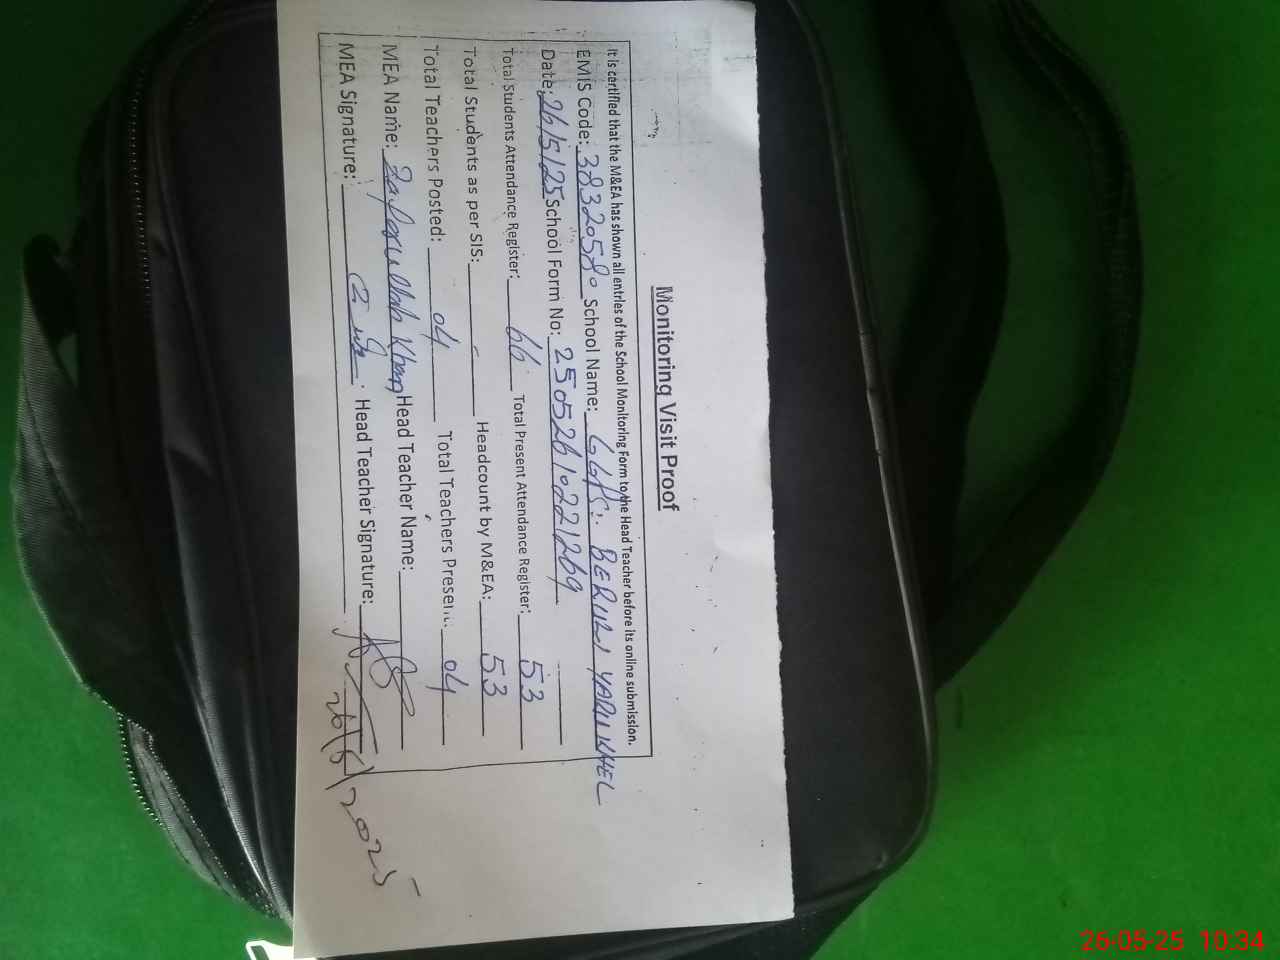 Monitoring Visit Proof
It is certified that the M&EA has shown all entries of the School Monitoring Form to the Head Teacher before its online submission.
EMIS Code: 38320580 School Name: GGPS: BERUNI YARU KHEL
Date: 26/5/25 School Form No: 250526102221269
Total Students Attendance Register: 66 Total Present Attendance Register: 53
Total Students as per SIS: - Headcount by M&EA: 53
Total Teachers Posted: 04 Total Teachers Present: 04
MEA Name: Zafarullah Khan Head Teacher Name:
MEA Signature: Head Teacher Signature:
26/5/2025
26-05-25 10:34